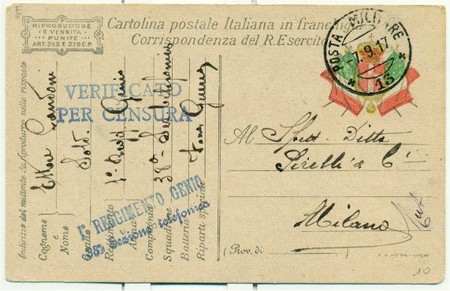 RIPRODUZIONE
E VENDITA
PUNITE
ART. 293 E 279 C.P.
Cartolina postale Italiana in franchigia
Corrispondenza del R. Esercito
POSTA MILITARE
7.9.17
* 13 *
VERIFICATO
PER CENSURA
Indirizzo del mittente da riprodurre nelle risposte
Cognome
e
Nome
Ettore
Grado Sold.
Reggimento 1° Genio
Arma
Compagnia 38ª
Squadrone
Batteria
Riparti speciali
1° REGGIMENTO GENIO
38ª Sezione telefonica
Al Spett. Ditta
Pirelli & C.
Milano
(Prov. di
10